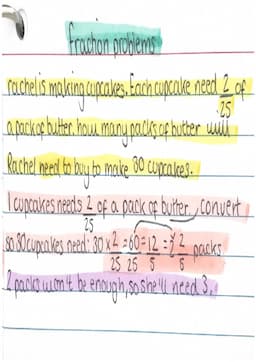 Fraction problems
rachel is making cupcakes. Each cupcake need 2/25 of
a pack of butter. how many packs of butter will
Rachel need to buy to make 30 cupcakes.
1 cupcakes needs 2/25 of a pack of butter, convert
so 30 cupcakes need: 30 x 2/25 = 60/25 = 12/5 = 2 2/5 packs
2 packs won't be enough, so she'll need 3.